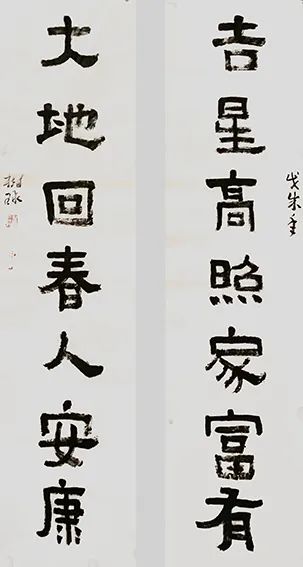 吉星高照家富有
戊朱年
大地回春人安康
樹球